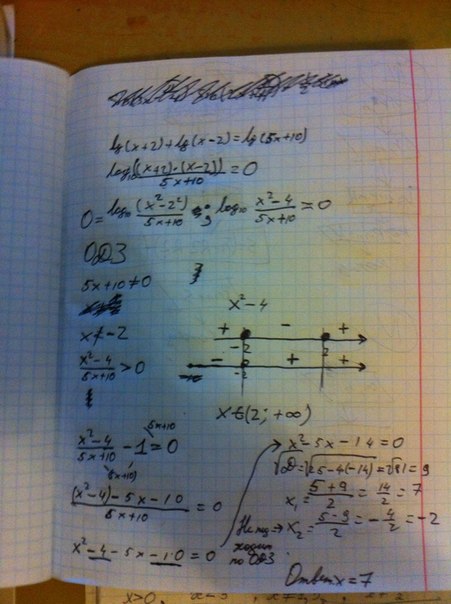 lg(x+2)+lg(x-2)=lg(5x+10)
log₁₀((x+2)·(x-2))/(5x+10)=0
0=log₁₀(x²-2²)/(5x+10); log₁₀ (x²-4)/(5x+10)=0
ОДЗ
5x+10≠0
x≠-2
(x²-4)/(5x+10)>0
x²-4
+ - +
-2 2
- + +
-2
x∈(2;+∞)
(x²-4)/(5x+10) - 1=0
5x+10
(5x+10)
((x²-4)-5x-10)/(5x+10)=0
x²-4-5x-10=0
x²-5x-14=0
√D=√25-4(-14)=√81=9
x₁=(5+9)/2=14/2=7
x₂=(5-9)/2=-4/2=-2
Не
ходит
по ОДЗ.
Ответ x=7
x>0,